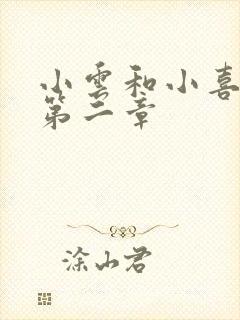 小雪和小喜
第二章
涂山君